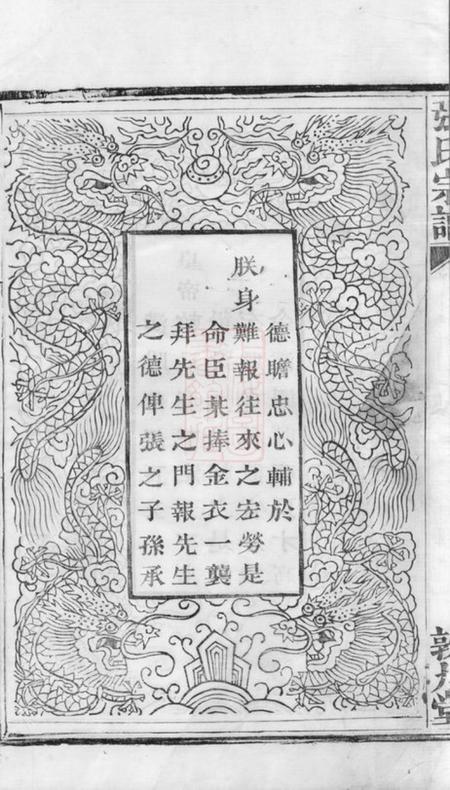 張氏宗譜
德瞻忠心輔於
朕身難報往來之宏勞是
命臣某捧金衣一襲
拜先生之門報先生
之德俾張之子孫承